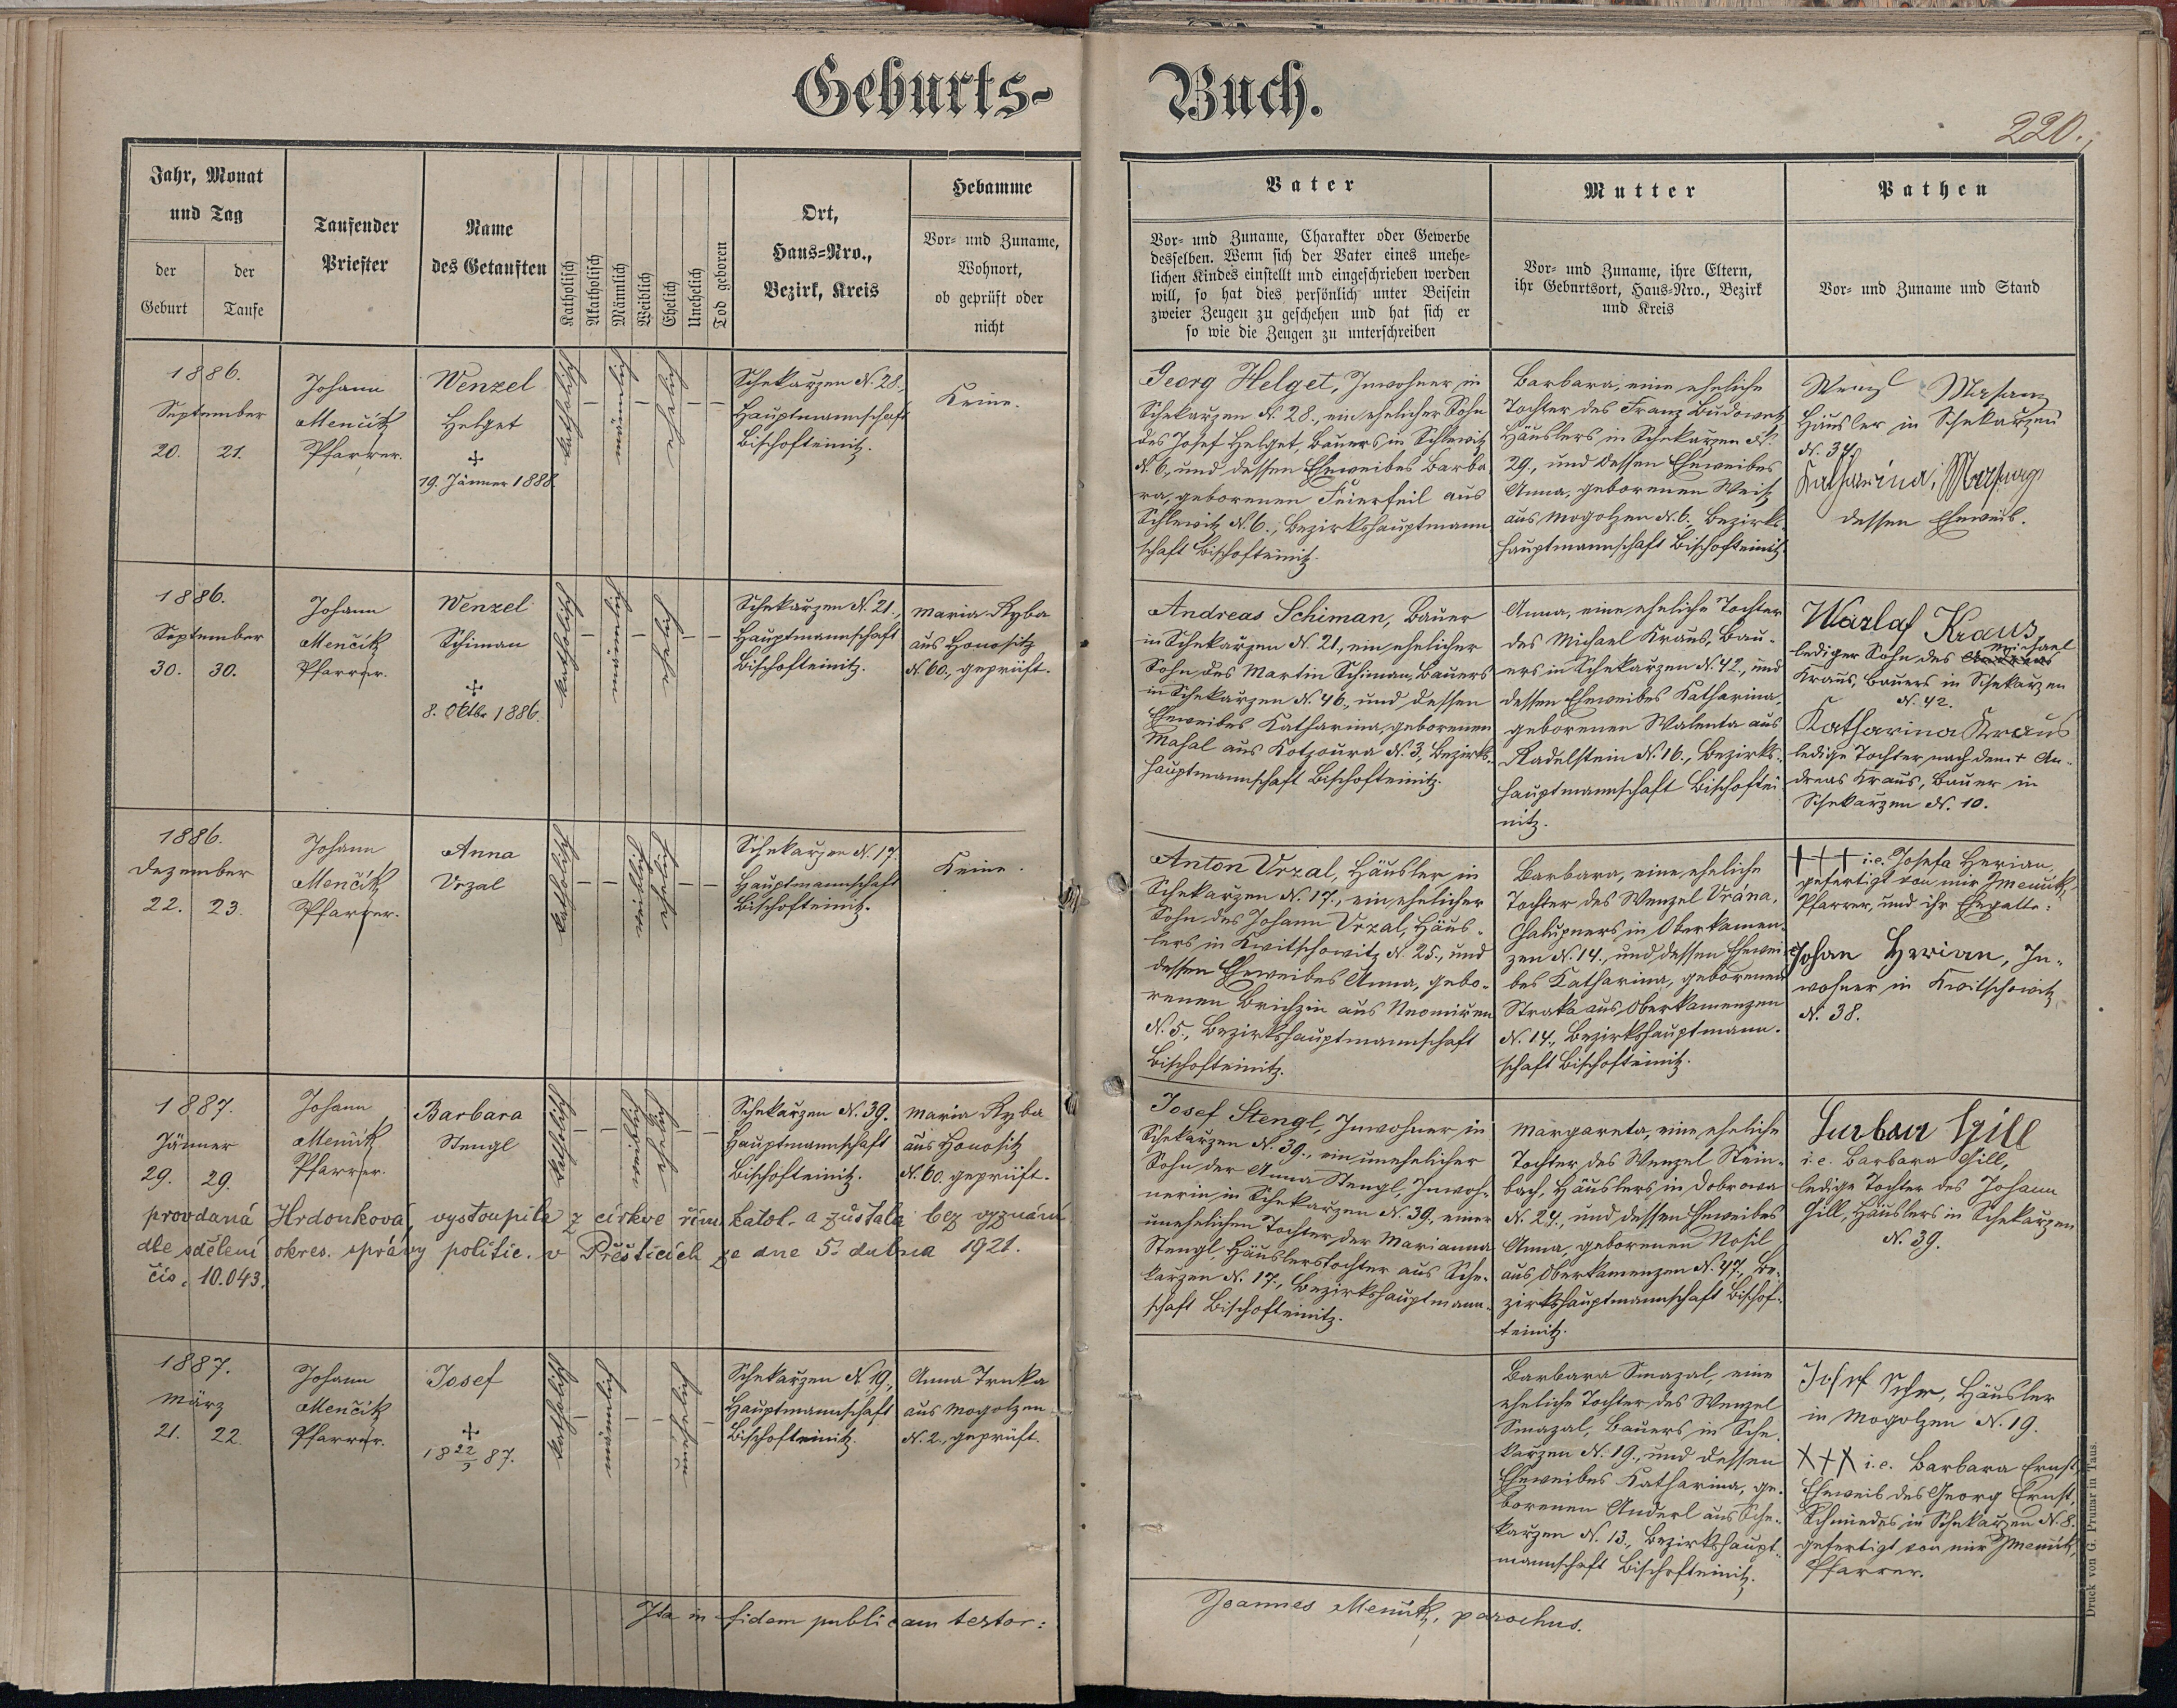 Geburts-
Buch.
220.
Jahr, Monat
und Tag
der
Geburt
der
Taufe
Taufender
Priester
Name
des Getauften
Katholisch
Akatholisch
Männlich
Weiblich
Ehelich
Unehelich
Tod geboren
Ort,
Haus-Nro.,
Bezirk, Kreis
Hebamme
Vor- und Zuname,
Wohnort,
ob geprüft oder
nicht
Vater
Vor- und Zuname, Charakter oder Gewerbe
desselben. Wenn sich der Vater eines unehe-
lichen Kindes einstellt und eingeschrieben werden
will, so hat dies persönlich unter Beisein
zweier Zeugen zu geschehen und hat sich er
so wie die Zeugen zu unterschreiben
Mutter
Vor- und Zuname, ihre Eltern,
ihr Geburtsort, Haus-Nro., Bezirk
und Kreis
Pathen
Vor- und Zuname und Stand
1886.
September
20. 21.
Johann
Menčik
Pfarrer.
Wenzel
Helget
+
19. Jänner 1888.
katholisch
männlich
ehelich
Schekarzen N. 28.,
Hauptmannschaft
Bischofteinitz.
Keine.
Georg Helget, Inwohner in
Schekarzen N. 28., ein ehelicher Sohn
des Josef Helget, Bauers in Schlewitz
N. 6., und dessen Eheweibes Barba
ra, geborenen Feierfeil aus
Schlewitz N. 6., Bezirkshauptmann
schaft Bischofteinitz.
Barbara, eine eheliche
Tochter des Franz Budowetz
Häuslers in Schekarzen N.
29., und dessen Eheweibes
Anna, geborenen Weiß
aus Mogolzen N. 6., Bezirks-
hauptmannschaft Bischofteinitz.
Wenzl
Häusler in Schekarzen
N. 34.
Katharina
dessen Eheweib.
1886.
September
30. 30.
Johann
Menčik
Pfarrer.
Wenzel
Schiman
+
8. Oktbr 1886.
katholisch
männlich
ehelich
Schekarzen N. 21.,
Hauptmannschaft
Bischofteinitz.
Maria Ryba
aus Honositz
N. 60., geprüft.
Andreas Schiman, Bauer
in Schekarzen N. 21., ein ehelicher
Sohn des Martin Schiman, Bauers
in Schekarzen N. 46., und dessen
Eheweibes Katharina, geborenen
Mahal aus Kotzoura N. 3., Bezirks-
hauptmannschaft Bischofteinitz.
Anna, eine eheliche Tochter
des Michael Kraus, Bau-
ers in Schekarzen N. 42., und
dessen Eheweibes Katharina,
geborenen Walenta aus
Radelstein N. 16., Bezirks-
hauptmannschaft Bischoftei
nitz.
Wazlaf Kraus,
Michael
lediger Sohn des Andreas
Kraus, Bauers in Schekarzen
N. 42.
Katharina Kraus
ledige Tochter nach dem + An-
dreas Kraus, Bauer in
Schekarzen N. 10.
1886.
Dezember
22. 23.
Johann
Menčik
Pfarrer.
Anna
Vrzal
katholisch
weiblich
ehelich
Schekarzen N. 17.
Hauptmannschaft
Bischofteinitz.
Keine.
Anton Vrzal, Häusler in
Schekarzen N. 17., ein ehelicher
Sohn des Johann Vrzal, Häus-
lers in Kwitschowitz N. 25., und
dessen Eheweibes Anna, gebo-
renen Brichzin aus
N. 5., Bezirkshauptmannschaft
Bischofteinitz.
Barbara, eine eheliche
Tochter des Wenzel Vrána,
Chalupners in Oberkamen-
zen N. 14., und dessen Ehewei
bes Katharina, geborenen
Straka aus Oberkamenzen
N. 14., Bezirkshauptmann-
schaft Bischofteinitz.
+++ i.e. Josefa Herian,
gefertigt von mir JMenčik,
Pfarrer, und ihr Ehegatte:
Johan Herian, In-
wohner in Kwitschowitz
N. 38.
1887.
Jänner
29. 29.
Johann
Menčik
Pfarrer.
Barbara
Stengl
katholisch
weiblich
ehelich
Schekarzen N. 39.
Hauptmannschaft
Bischofteinitz.
Maria Ryba
aus Honositz
N. 60. geprüft.
provdaná Hrdonková, vystoupila z církve řím. katol. a zůstala bez vyznání
dle sdělení okres. správy politic. v Přešticích ze dne 5. dubna 1921.
čís. 10.043.
Josef Stengl, Inwohner in
Schekarzen N. 39., ein unehelicher
Sohn der Anna Stengl, Inwoh-
nerin in Schekarzen N. 39., einer
unehelichen Tochter der Marianna
Stengl, Häuslerstochter aus Sche-
karzen N. 17., Bezirkshauptmann-
schaft Bischofteinitz.
Margareta, eine eheliche
Tochter des Wenzel Stein-
bach, Häuslers in Dobrowa
N. 24., und dessen Eheweibes
Anna, geborenen Nosil
aus Oberkamenzen N. 47., Be-
zirkshauptmannschaft Bischof-
teinitz.
Gill
i.e. Barbara Gill,
ledige Tochter des Johann
Gill, Häuslers in Schekarzen
N. 39.
1887.
März
21. 22.
Johann
Menčik
Pfarrer.
Josef
+
18 22/3 87.
katholisch
männlich
unehelich
Schekarzen N. 19.,
Hauptmannschaft
Bischofteinitz.
Anna Trnka
aus Mogolzen
N. 2., geprüft.
Barbara Smazal, eine
eheliche Tochter des Wenzel
Smazal, Bauers in Sche-
karzen N. 19., und dessen
Eheweibes Katharina, ge-
borenen Anderl aus Sche-
karzen N. 13., Bezirkshaupt-
mannschaft Bischofteinitz.
Josef Häusler
in Mogolzen N. 19.
+++ i.e. Barbara Ernst,
Eheweib des Georg Ernst,
Schmiedes in Schekarzen N. 8.
gefertigt von mir JMenčik,
Pfarrer.
Ita in fidem publicam testor:
Joannes Menčik, parochus.
Druck von G. Prunar in Taus.